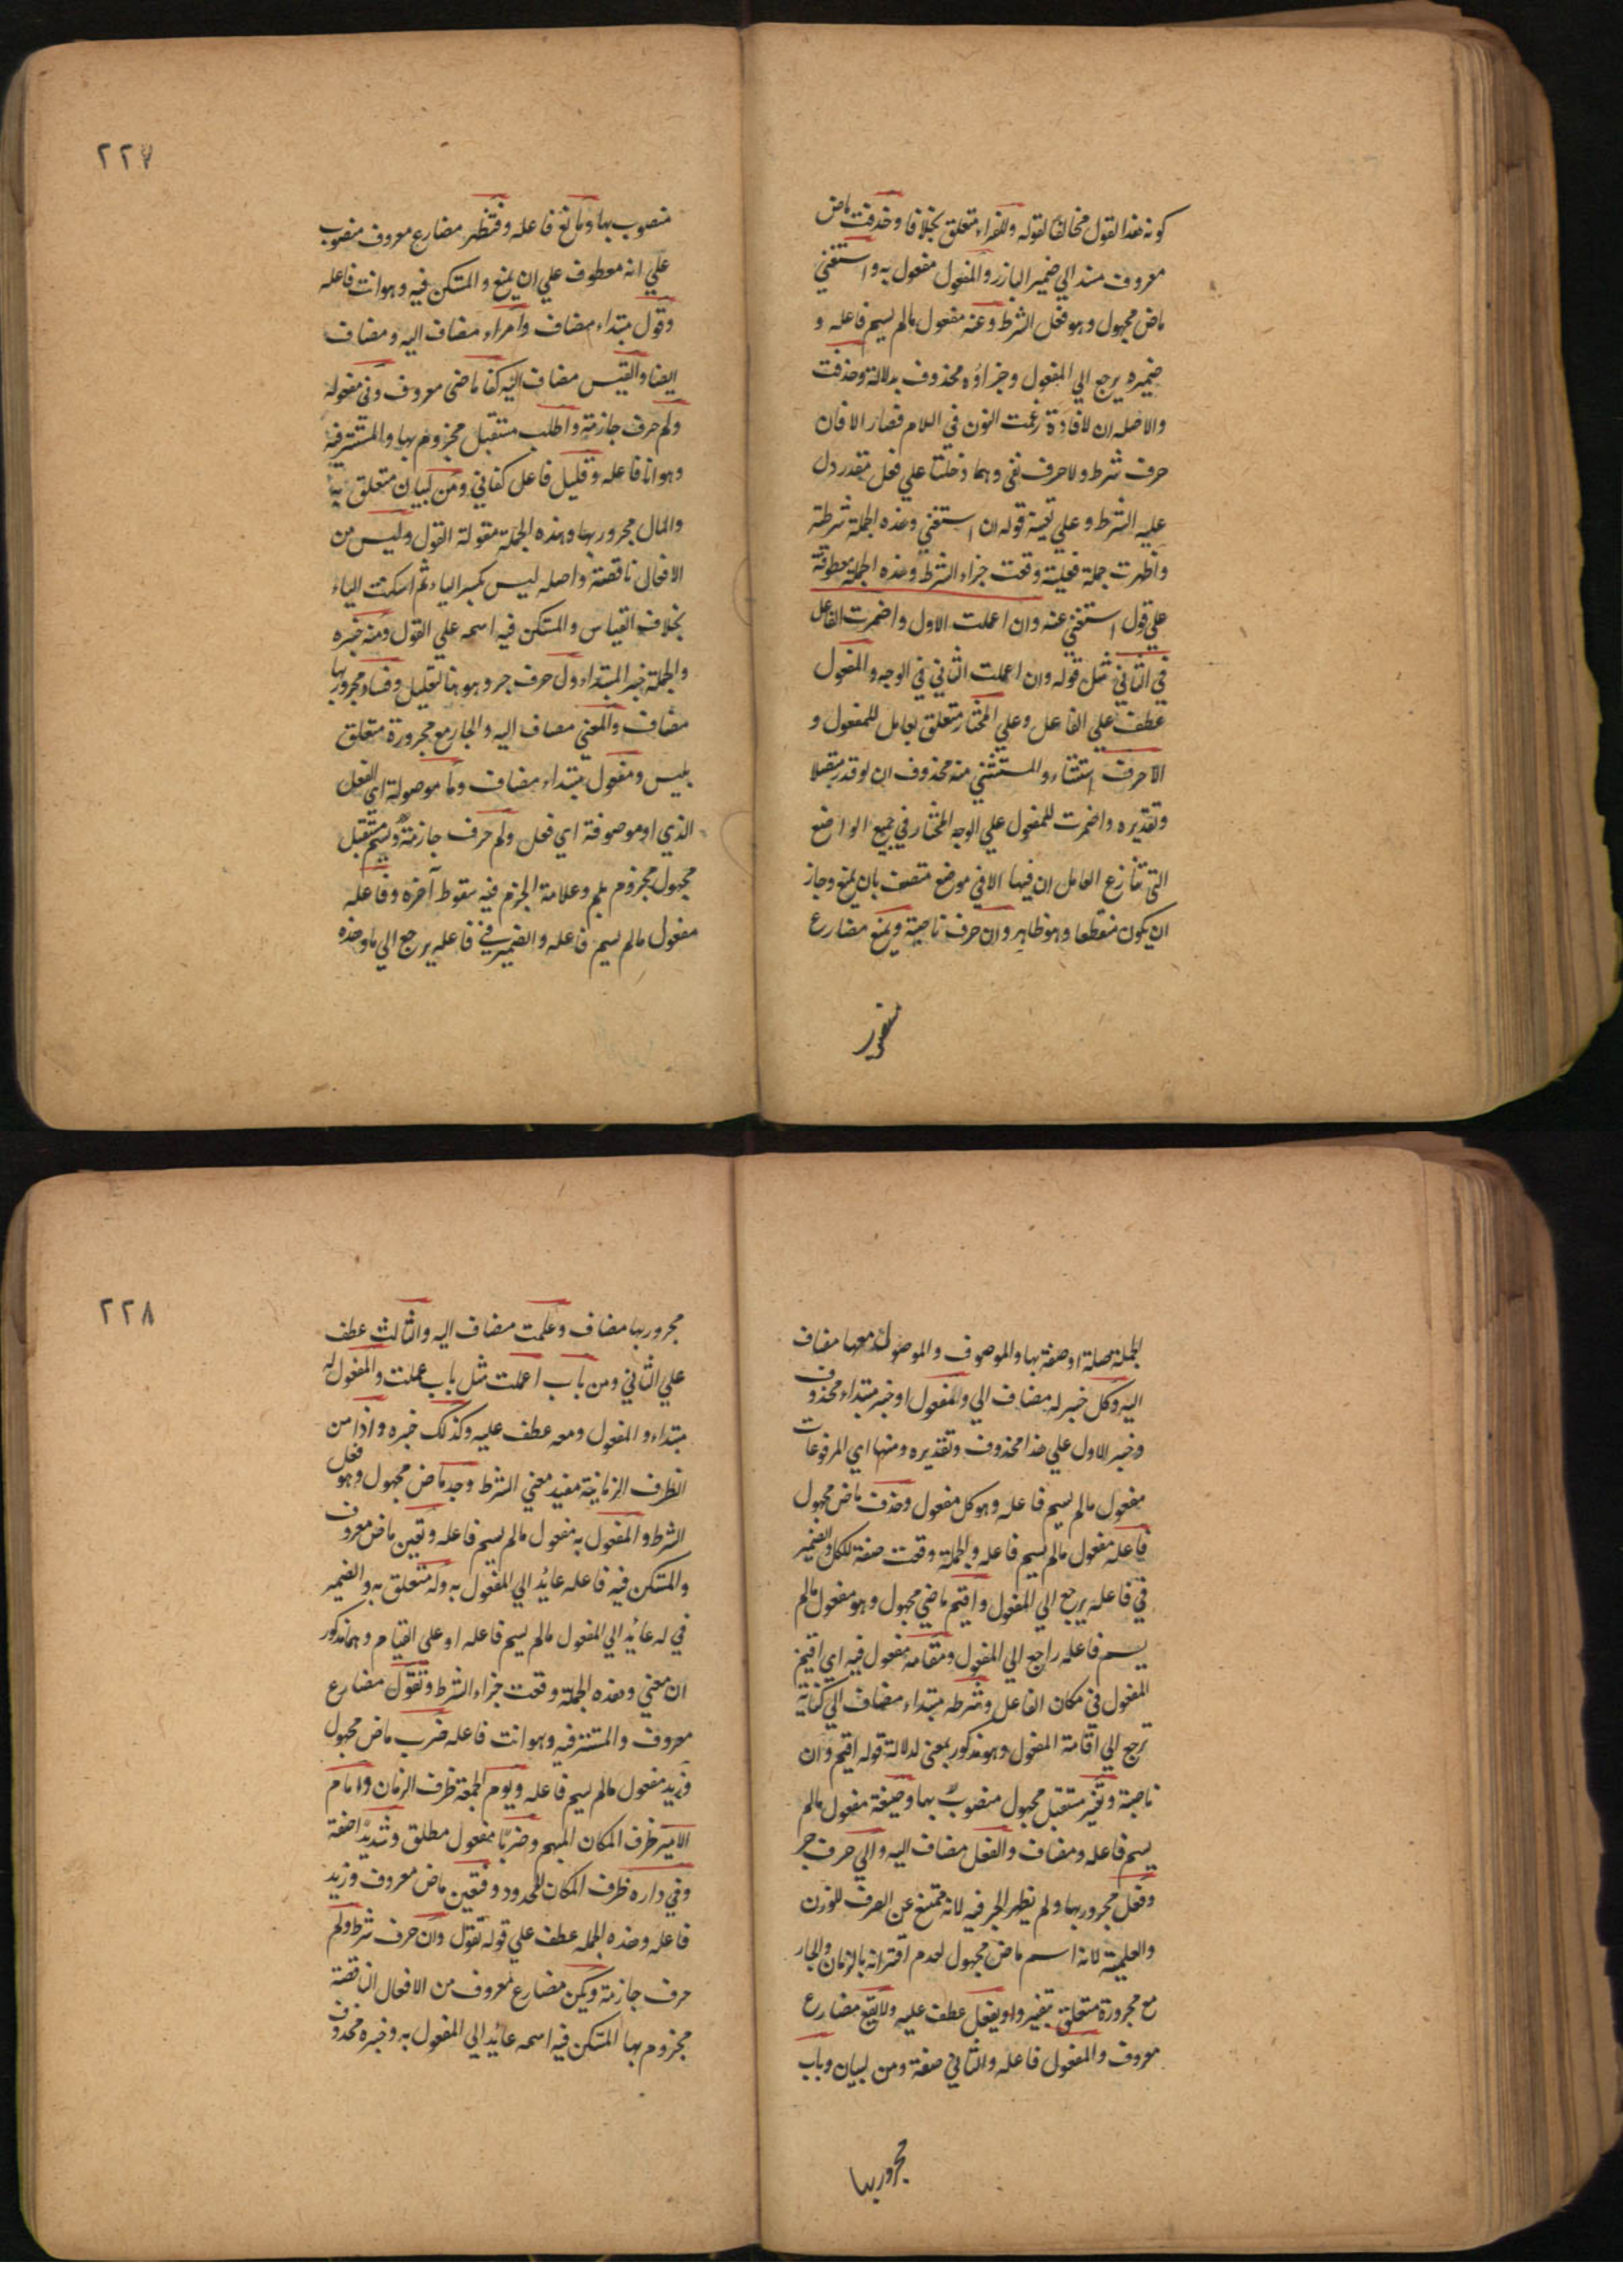 كونه هذا القول مخالفا لقوله وللفراء متعلق بخلافا وحذفت ماض
معروف مسند الي ضمير البارز والمفعول مفعول به واستغني
ماض مجهول وهو فعل الشرط وعنه مفعول مالم يسم فاعله و
ضميره يرجع الي المفعول وجزاؤه محذوف بدلالة وحذفت
والا اصله ان لا فادغمت النون في اللام فصار الا فان
حرف شرط ولا حرف نفي وهما دخلتا علي فعل مقدر دل
عليه الشرط وعلي تعيينه قوله ان استغني وهذه الجملة شرطية
واظهرت جملة فعلية وقعت جزاء الشرط وهذه الجملة معطوفة
علي قول استغني عنه وان اعملت الاول واضمرت الفاعل
في الثاني مثل قوله وان اعملت الثاني في الوجه والمفعول
عطف علي الفاعل وعلي المختار متعلق بعامل للمفعول و
الا حرف استثناء والمستثني منه محذوف ان لو قدر متصلا
وتقديره واضمرت للمفعول علي الوجه المختار في جميع المواضع
التي تنازع العاملان فيها الا في موضع متصف بان يمنع وجاز
ان يكون منقطعا وهو ظاهر وان حرف ناصبة ويمنع مضارع
منصوب
٢٢٧
منصوب بها ومانع فاعله وفتظهر مضارع معروف منصوب
علي انه معطوف علي ان يمنع والمستكن فيه وهو انت فاعله
وقول مبتداء مضاف وامراء مضاف اليه ومضاف
ايضا والقيس مضاف اليه كفا ماضي معروف وني مفعوله
ولم حرف جازمة واطلب مستقبل مجزوم بها والمستتر فيه
وهو انا فاعله وقليل فاعل كفاني ومن لبيان متعلق به
والمال مجرور بها وهذه الجملة مقولة القول وليس من
الافعال ناقصة واصله ليس بكسر الياء ثم اسكنت الياء
بخلاف القياس والمستكن فيه اسمه علي القول ومنه خبره
والجملة خبر المبتداء ول حرف جر وهو هنا لتعليل وفساد مجرور بها
مضاف والمعني مضاف اليه والجار مع مجروره متعلق
بليس ومفعول مبتداء مضاف وما موصولة اي الفعل
الذي او موصوفة اي فعل ولم حرف جازمة ويسم مستقبل
مجهول مجزوم بلم وعلامة الجزم فيه سقوط آخره وفاعله
مفعول مالم يسم فاعله والضمير في فاعله يرجع الي ما وهذه
الجملة صلة او صفة بها والموصوف والموصول معها مضاف
اليه وكل خبر له مضاف الي والمفعول او خبر مبتداء محذوف
وخبر الاول علي هذا محذوف وتقديره ومنها اي المرفوعات
مفعول مالم يسم فاعله وهو كل مفعول وحذف ماض مجهول
فاعله مفعول مالم يسم فاعله والجملة وقعت صفة لكل والضمير
في فاعله يرجع الي المفعول واقيم ماضي مجهول وهو مفعول مالم
يسم فاعله راجع الي المفعول ومقامه مفعول فيه اي اقيم
المفعول في مكان الفاعل وشرطه مبتداء مضاف الي كناية
ترجع الي اقامة المفعول وهو مذكور بمعني لدلالة قوله اقيم وان
ناصبة وتغير مستقبل مجهول منصوب بها وصيغة مفعول مالم
يسم فاعله ومضاف والفعل مضاف اليه والي حرف جر
وفعل مجرور بها ولم يظهر الجر فيه لانه ممتنع عن الصرف للوزن
والعلمية لانه اسم ماض مجهول لعدم اقترانه بالزمان والجار
مع مجروره متعلق بتغير واو يفعل عطف عليه ولا يقع مضارع
معروف والمفعول فاعله والثاني صفة ومن لبيان وباب
مجرور بها
٢٢٨
مجرور بها مضاف وعلمت مضاف اليه والثالث عطف
علي الثاني ومن باب اعلمت مثل باب علمت والمفعول له
مبتداء والمفعول ومعه عطف عليه وكذلك خبره واذا من
الظرف الزمانية مفيد معني الشرط وجد ماض مجهول وهو فعل
الشرط والمفعول به مفعول مالم يسم فاعله وتعين ماض معروف
والمستكن فيه فاعله عائد الي المفعول به وله متعلق به والضمير
في له عائد الي المفعول مالم يسم فاعله او علي القيام وهما مذكور
ان معني وهذه الجملة وقعت جزاء الشرط وتقول مضارع
معروف والمستتر فيه وهو انت فاعله ضرب ماض مجهول
وزيد مفعول مالم يسم فاعله ويوم الجمعة ظرف الزمان وامام
الامير ظرف المكان المبهم وضربا مفعول مطلق وشديدا صفة
وفي داره ظرف المكان المحدود وفتعين ماض معروف وزيد
فاعله وهذه الجمله عطف علي قوله تقول وان حرف شرط ولم
حرف جازمة ويكن مضارع معروف من الافعال الناقصة
مجزوم بها المستكن فيه اسمه عائد الي المفعول به وخبره محذوف